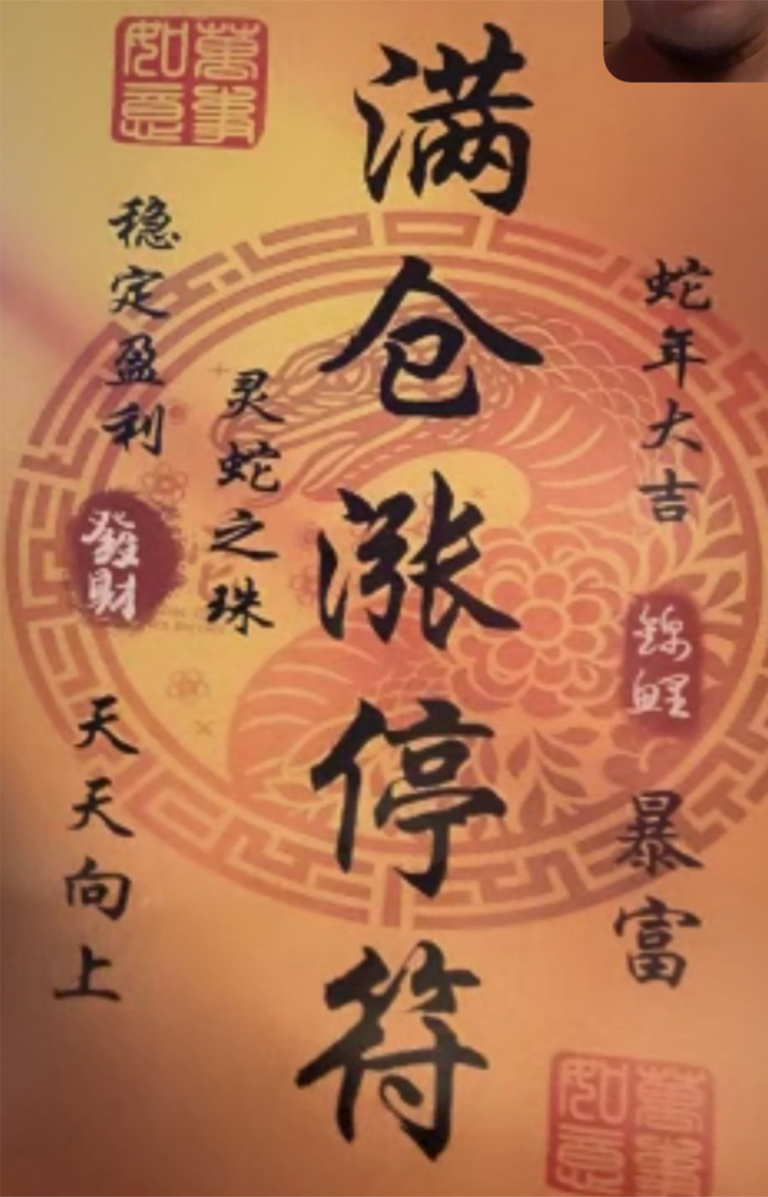 萬事如意
满仓涨停符
蛇年大吉
錦鲤
暴富
灵蛇之珠
稳定盈利
發財
天天向上
萬事如意